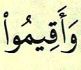 وَأَقِيمُوا۟